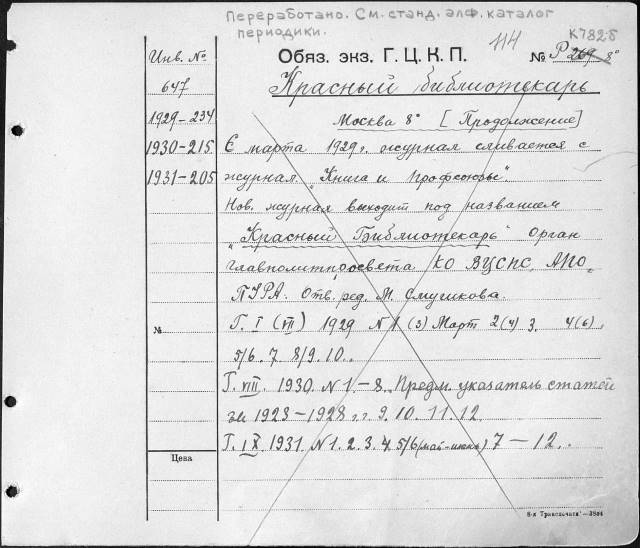 Переработано. См. станд. алф. каталог
периодики.
К782-б
Обяз. экз. Г. Ц. К. П.
114
№ Р 269 8°
Инв. №
647
1929-234
1930-215
1931-205
Красный библиотекарь
Москва 8° [Продолжение]
С марта 1929г. журнал сливается с
журнал. "Книга и Профсоюзы".
Нов. журнал выходит под названием
"Красный Библиотекарь" Орган
главполитпросвета, КО ВЦСПС, АПО,
ПУРА. Отв. ред. М. Смушкова.
№
Г. I (VII) 1929 N 1 (3) Март 2(4) 3. 4(6),
5/6. 7. 8/9. 10..
Г. VIII. 1930. N 1.-8. Предм. указатель статей
за 1923-1928 г.г. 9. 10. 11. 12.
Г. IX 1931. N 1. 2. 3. 4. 5/6 (май-июнь) 7-12..
Цена
8-я „Транспечать“—3894